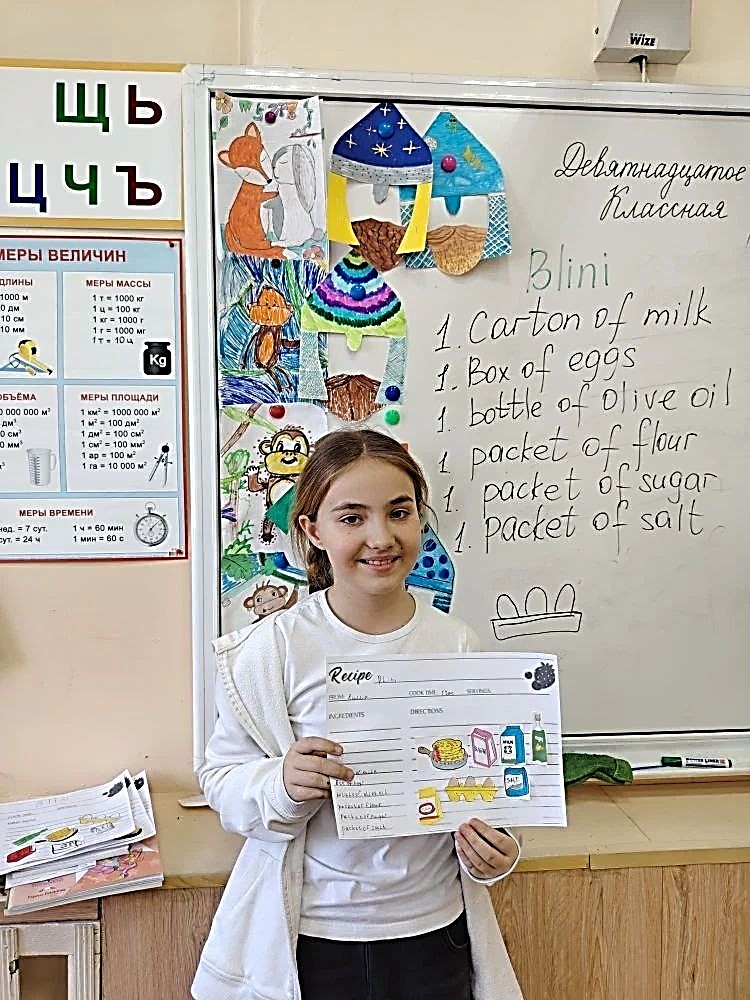 WIZE
Щ Ь
Ц Ч Ъ
Девятнадцатое
Классная
Blini
1. Carton of milk
1. Box of eggs
1 bottle of olive oil
1 packet of flour
1. packet of sugar
1. packet of salt
МЕРЫ ВЕЛИЧИН
ДЛИНЫ
1000 м
10 дм
10 см
10 мм
МЕРЫ МАССЫ
1 т = 1000 кг
1 ц = 100 кг
1 кг = 1000 г
1 г = 1000 мг
1 т = 10 ц
Kg
ОБЪЁМА
МЕРЫ ПЛОЩАДИ
1 км² = 1000 000 м²
1 м² = 100 дм²
1 дм² = 100 см²
1 см² = 100 мм²
1 ар = 100 м²
1 га = 10 000 м²
МЕРЫ ВРЕМЕНИ
1 нед. = 7 сут.
1 сут. = 24 ч
1 ч = 60 мин
1 мин = 60 с
Recipe Blini
FROM COOK TIME SERVINGS
INGREDIENTS
DIRECTIONS
MILK
SALT
packet of flour
packet of sugar
packet of salt